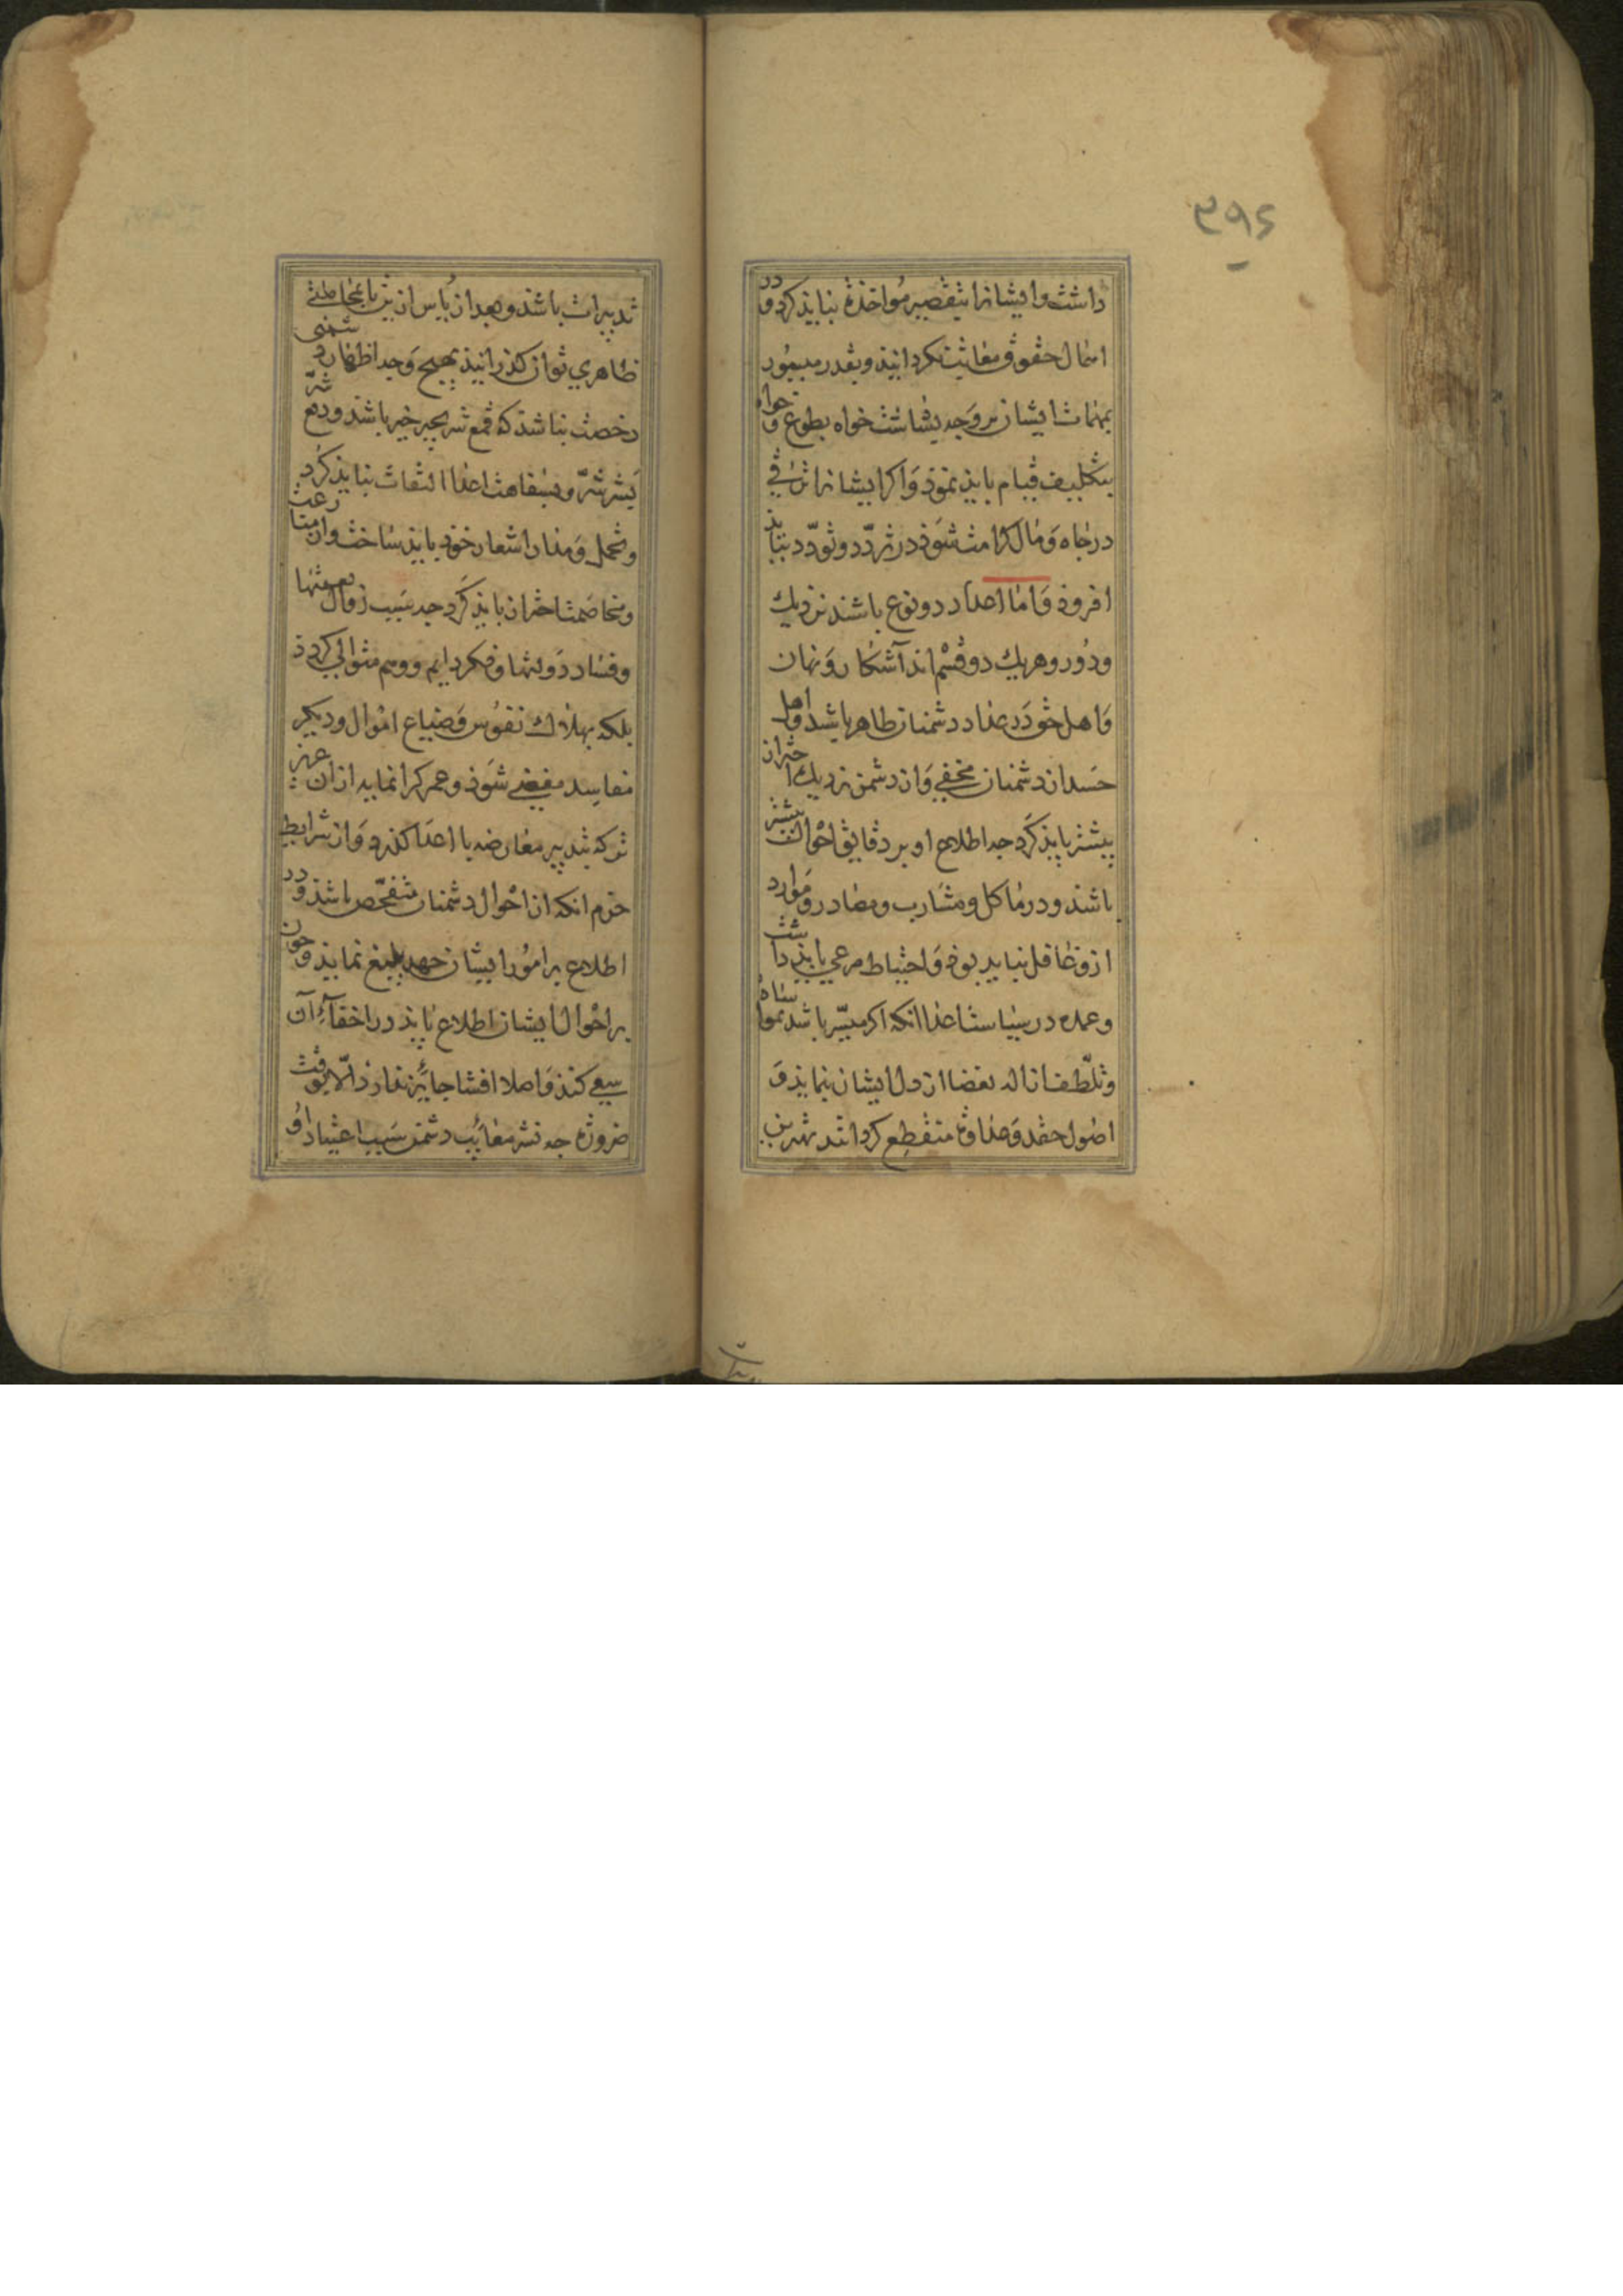 ۳۹۶
داشت و ایشانرا بتقصیر مواخذه نباید کرد و در
اهمال حقوق معاتبت نکردانید و بقدر میسور
بمهمات ایشان بر وجه بشاشت خواه بطوع و خواه
بتکلیف قیام باید نموذ وَاکر ایشانرا ترقی
در جاه وَمال کرامت شوَد در تردّد و تودّد نباید
افزوذ وَاما اعدا دو نوع باشند نزدیك
ودُور وهر یك دو قسْم اند آشکار وَنهان
وَاهل حقد در عداد دشمنان ظاهر باشند و اهل
حَسد از دشمنان مخفی وَاز دشمن نزدیك احتراز
بیشتر باید کرد جه اطلاع او بر دقایق احْوال بیشتر
باشد ودر ماکل ومشارب ومصادر و موَارد
ازو غافل نباید بوذ وَاحتیاط مرعی باید داشت
وعمده در سیاست اعدا انکه اکر میسّر باشد بمواساة
وتلطف ازاله بغضا از دل ایشان نماید وَ
اصُول حقد وَعداوت منقطع کرداند بهترین
تدبیرات باشد و بعد از یأس از نیز تا بمجاملتی
ظاهری توان کذرانید بهیچ وَجه اظهار دشمنی
رخصت نباشد که قمع شر بخیر خیر باشد ودفع شرّ
بشر شرّ وبسفاهت اعدا التفات نباید کرد
وتحمل وَمدارا شعار خوذ باید ساخت واز منازعت
ومخاصمت احتراز باید کَرد جه سَبب زوال نعمتها
وفساد دَولتها وفکر دایم وهم متوالی کردد
بلکه بهلاك نفوُس وَضیاع امْوال و دیکر
مفاسد مفضی شوَذ وعمر کرانمایه از آن عزیز
تر که بتدبیر معارضه با اعدَا کذرد وَاز شرایط
حزم انکه از احْوال دشمنان متفحّص باشد و در
اطلاع بر امور ایشان جهد بلیغ نماید و جون
بر احْوال ایشان اطلاع یابد در اخفآءِ آن
سعی کند وَاصلا افشا جایز ندارد الّا بوقت
ضرورة جه نشر معایب دشمن سَبب اعتیاد اوُ